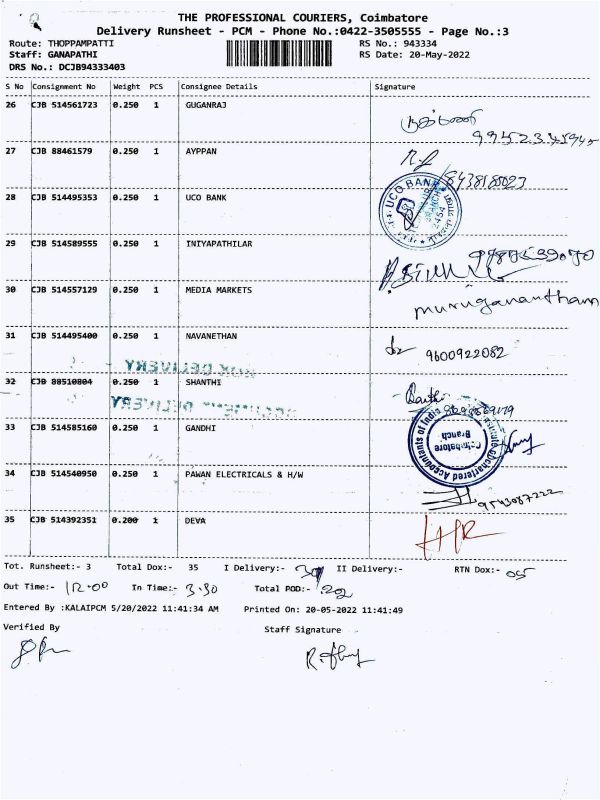 THE PROFESSIONAL COURIERS, Coimbatore
Delivery Runsheet - PCM - Phone No.:0422-3505555 - Page No.:3
Route: THOPPAMPATTI RS No.: 943334
Staff: GANAPATHI RS Date: 20-May-2022
DRS No.: DCJB94333403
S No Consignment No Weight PCS Consignee Details Signature
26 CJB 514561723 0.250 1 GUGANRAJ
27 CJB 88461579 0.250 1 AYPPAN
28 CJB 514495353 0.250 1 UCO BANK
UCO BANK
29 CJB 514589555 0.250 1 INIYAPATHILAR
30 CJB 514557129 0.250 1 MEDIA MARKETS
muruganantham
31 CJB 514495400 0.250 1 NAVANETHAN 9600922082
32 CJB 88510804 0.250 1 SHANTHI
33 CJB 514585160 0.250 1 GANDHI
Chartered Accountants of India
Coimbatore
Branch
34 CJB 514540950 0.250 1 PAWAN ELECTRICALS & H/W
9543087222
35 CJB 514392351 0.200 1 DEVA
Tot. Runsheet:- 3 Total Dox:- 35 I Delivery:- II Delivery:- RTN Dox:- 05
Out Time:- 12.00 In Time:- 3.30 Total POD:-
Entered By :KALAIPCM 5/20/2022 11:41:34 AM Printed On: 20-05-2022 11:41:49
Verified By Staff Signature